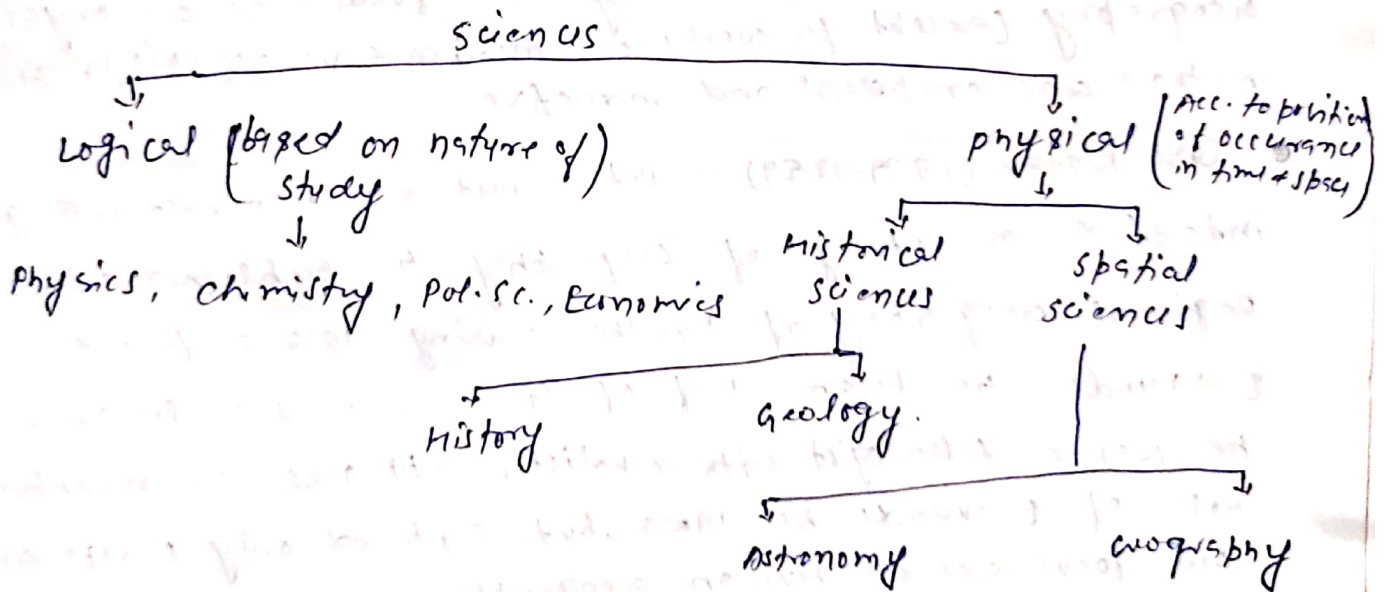 sciences
Logical (based on nature of study)
Physical (Acc. to position of occurance in time & space)
Physics, chemistry, Pol. Sc., Economics
Historical sciences
spatial sciences
History
Geology.
Astronomy
Geography